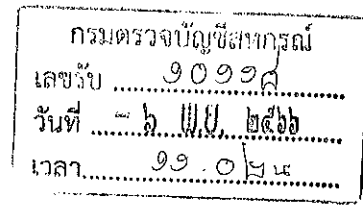 กรมตรวจบัญชีสหกรณ์
เลขรับ ๑๐๑๑๘
วันที่ - ๖ พ.ย. ๒๕๖๖
เวลา ๑๑.๐๒ น